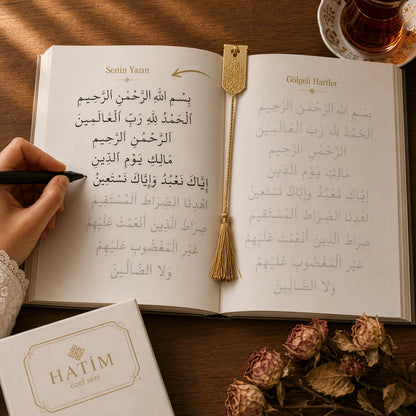 Senin Yazın
بِسْمِ اللهِ الرَّحْمٰنِ الرَّحِيمِ
اَلْحَمْدُ لِلّٰهِ رَبِّ الْعَالَمِينَ
اَلرَّحْمٰنِ الرَّحِيمِ
مَالِكِ يَوْمِ الدِّينِ
إِيَّاكَ نَعْبُدُ وَإِيَّاكَ نَسْتَعِينُ
اِهْدِنَا الصِّرَاطَ الْمُسْتَقِيمَ
صِرَاطَ الَّذِينَ أَنْعَمْتَ عَلَيْهِمْ
غَيْرِ الْمَغْضُوبِ عَلَيْهِمْ
وَلَا الضَّالِّينَ
Gölgeli Harfler
بِسْمِ اللهِ الرَّحْمٰنِ الرَّحِيمِ
اَلْحَمْدُ لِلّٰهِ رَبِّ الْعَالَمِينَ
اَلرَّحْمٰنِ الرَّحِيمِ
مَالِكِ يَوْمِ الدِّينِ
إِيَّاكَ نَعْبُدُ وَإِيَّاكَ نَسْتَعِينُ
اِهْدِنَا الصِّرَاطَ الْمُسْتَقِيمَ
صِرَاطَ الَّذِينَ أَنْعَمْتَ عَلَيْهِمْ
غَيْرِ الْمَغْضُوبِ عَلَيْهِمْ
وَلَا الضَّالِّينَ
HATİM
özel seri